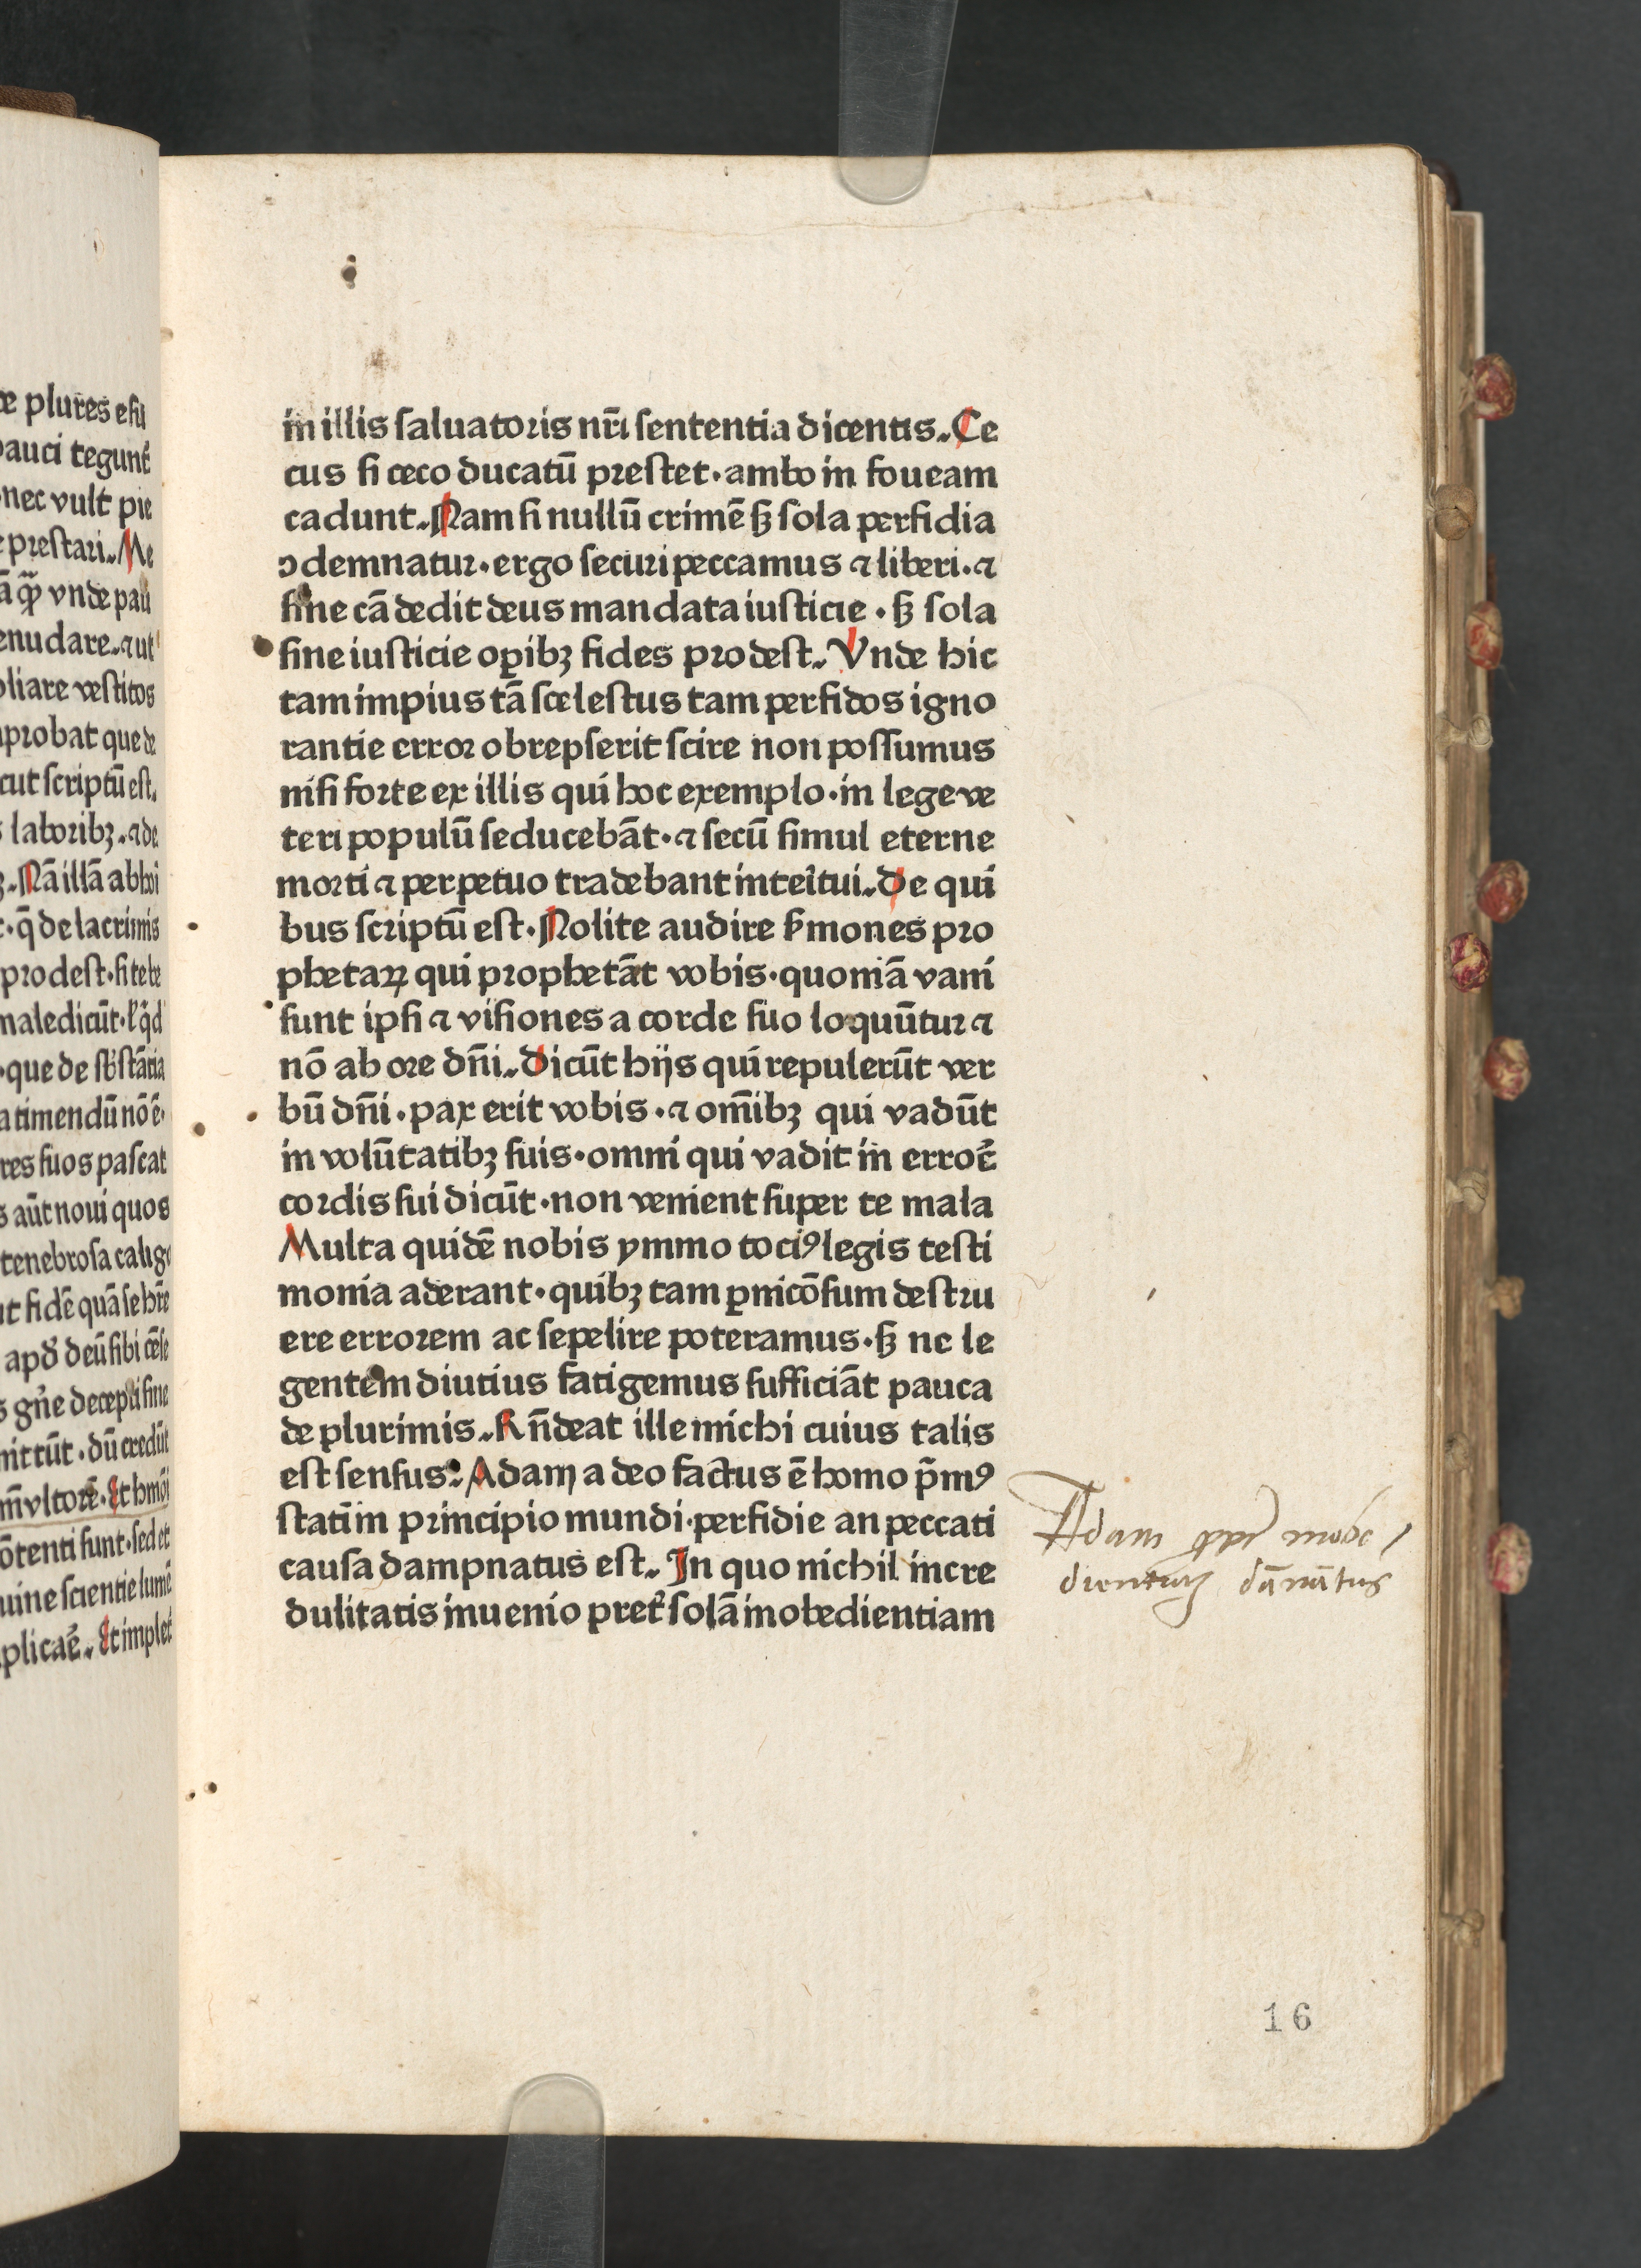 e plures esu
pauci tegunt᷑
nec vult pie
prestari. Ne
ā q̄ꝫ vnde pau
enudare. ⁊ ut
pliare vestitos
probat que de
cut scriptū est.
laboribꝫ. ⁊ de
Nā illā ab hoī
q̄ de lacrimis
prodest. si te be
maledicūt. ł qͥd
que de sb̄stātia
a timendū nō ē.
res suos pascat
s aūt noui quos
tenebrosa calig
nt fidē quā se hr̄e
apđ deū sibi cēse
s gn̄e decepti sine
mittūt. dū credūt
m̄ vltorē. Et hmōi
ōtenti sunt. sed et
uine scientie lumē
plicaē. Et implet
in illis saluatoris nr̄i sententia dicentis. Ce
cus si ceco ducatū prestet. ambo in foueam
cadunt. Nam si nullū crimē sꝫ sola perfidia
ↄdemnatur. ergo securi peccamus ⁊ liberi. ⁊
sine cā dedit deus mandata iusticie. sꝫ sola
sine iusticie oꝑibꝫ fides prodest. Vnde hic
tam impius tā scelestus tam perfidos igno
rantie error obrepserit scire non possumus
nisi forte ex illis qui hoc exemplo. in lege ve
teri populū seducebāt. ⁊ secū simul eterne
morti ⁊ perpetuo tradebant inteītui. De qui
bus scriptū est. Nolite audire ẜmones pro
phetaꝝ qui prophetāt vobis. quoniā vani
sunt ipsi ⁊ visiones a corde suo loquūtur ⁊
nō ab ore dn̄i. Dicūt hijs qui repulerūt ver
bū dn̄i. pax erit vobis. ⁊ om̄ibꝫ qui vadūt
in volūtatibꝫ suis. omni qui vadit in erroē
cordis sui dicūt. non venient super te mala
Multa quidē nobis ymmo tociꝰ legis testi
monia aderant. quibꝫ tam ꝑnicōsum destru
ere errorem ac sepelire poteramus. sꝫ ne le
gentem diutius fatigemus sufficiāt pauca
de plurimis. Rn̄deat ille michi cuius talis
est sensus. Adam a deo factus ē homo p̄mꝰ
statī in principio mundi. perfidie an peccati
causa dampnatus est. In quo nichil incre
dulitatis inuenio pret᷑ solā inobedientiam
Adam ꝓpt᷑ inobe
dientiaꝫ dānātus
16